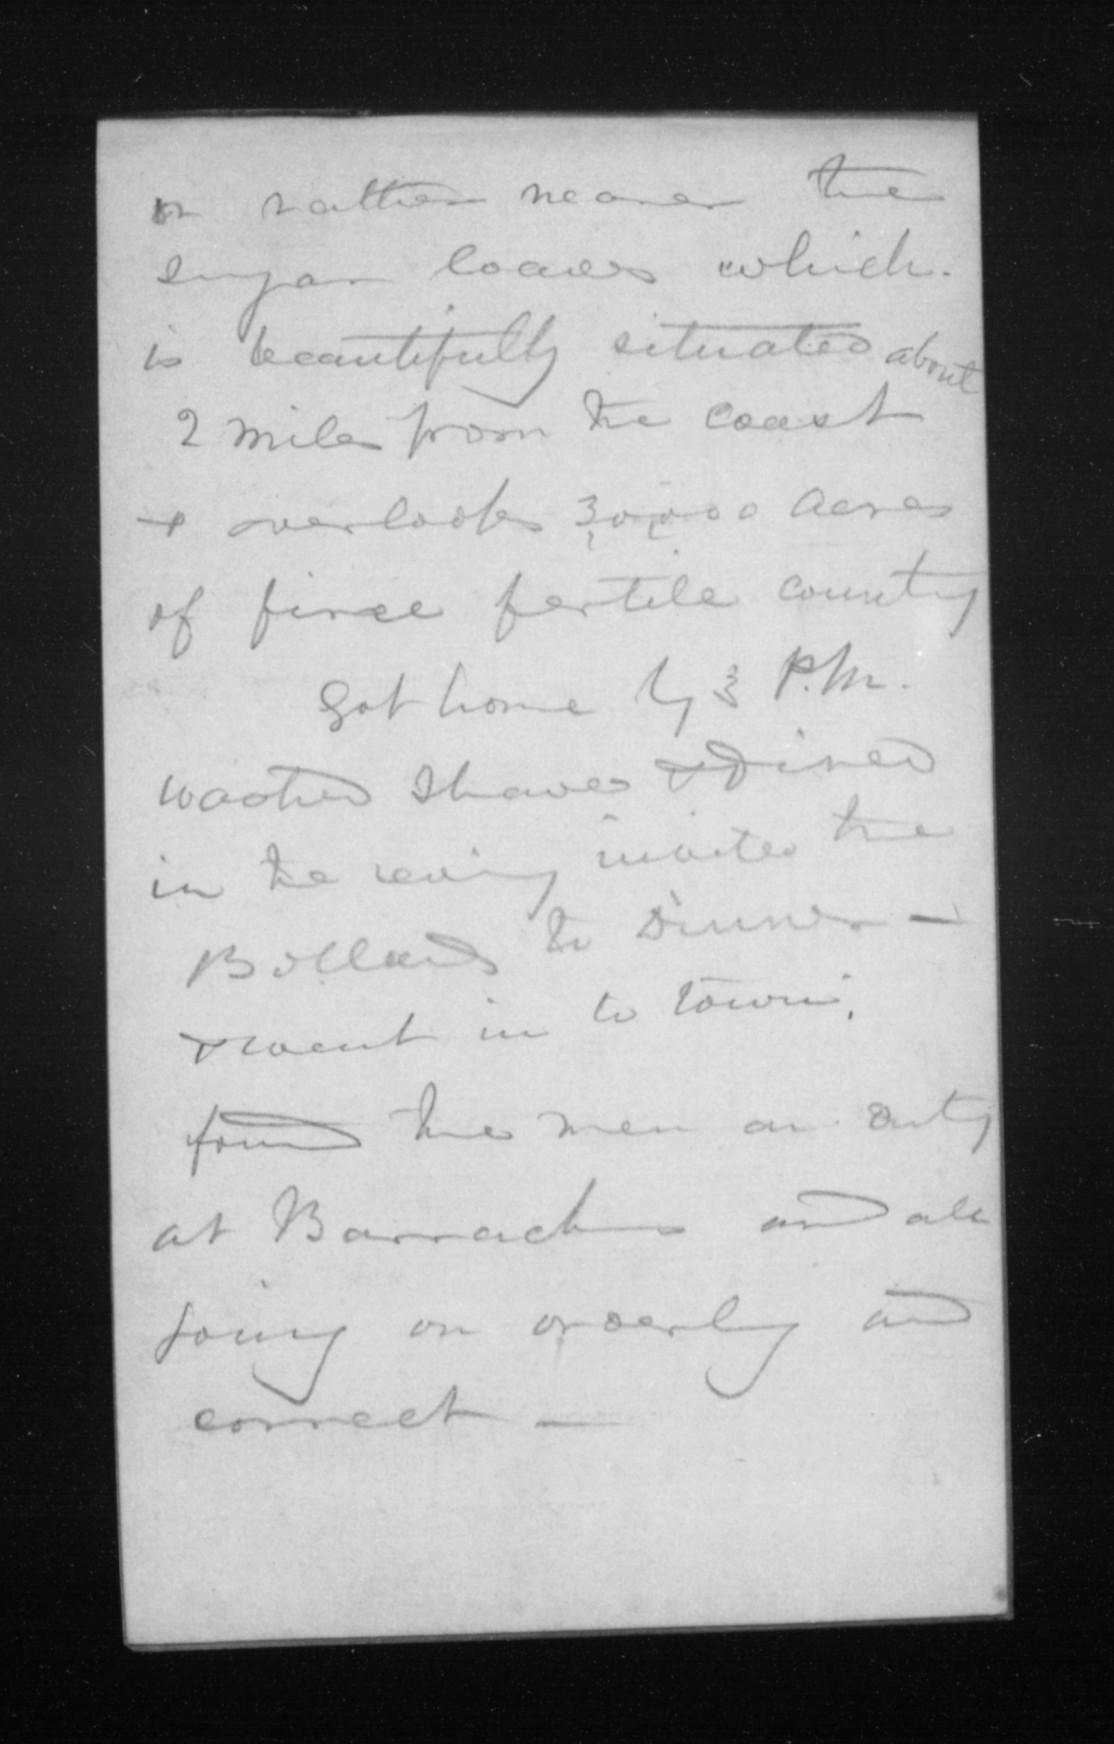 or rather nearer the
sugar loaves which
is beautifully situated about
2 miles from the coast
& overlooks 30,000 acres
of fine fertile country
Got home by 3 P.M.
washed shaved & dined
in the evening invited the
Bollards to Dinner —
& went in to town.
found the men on duty
at Barracks and all
going on orderly and
correct —